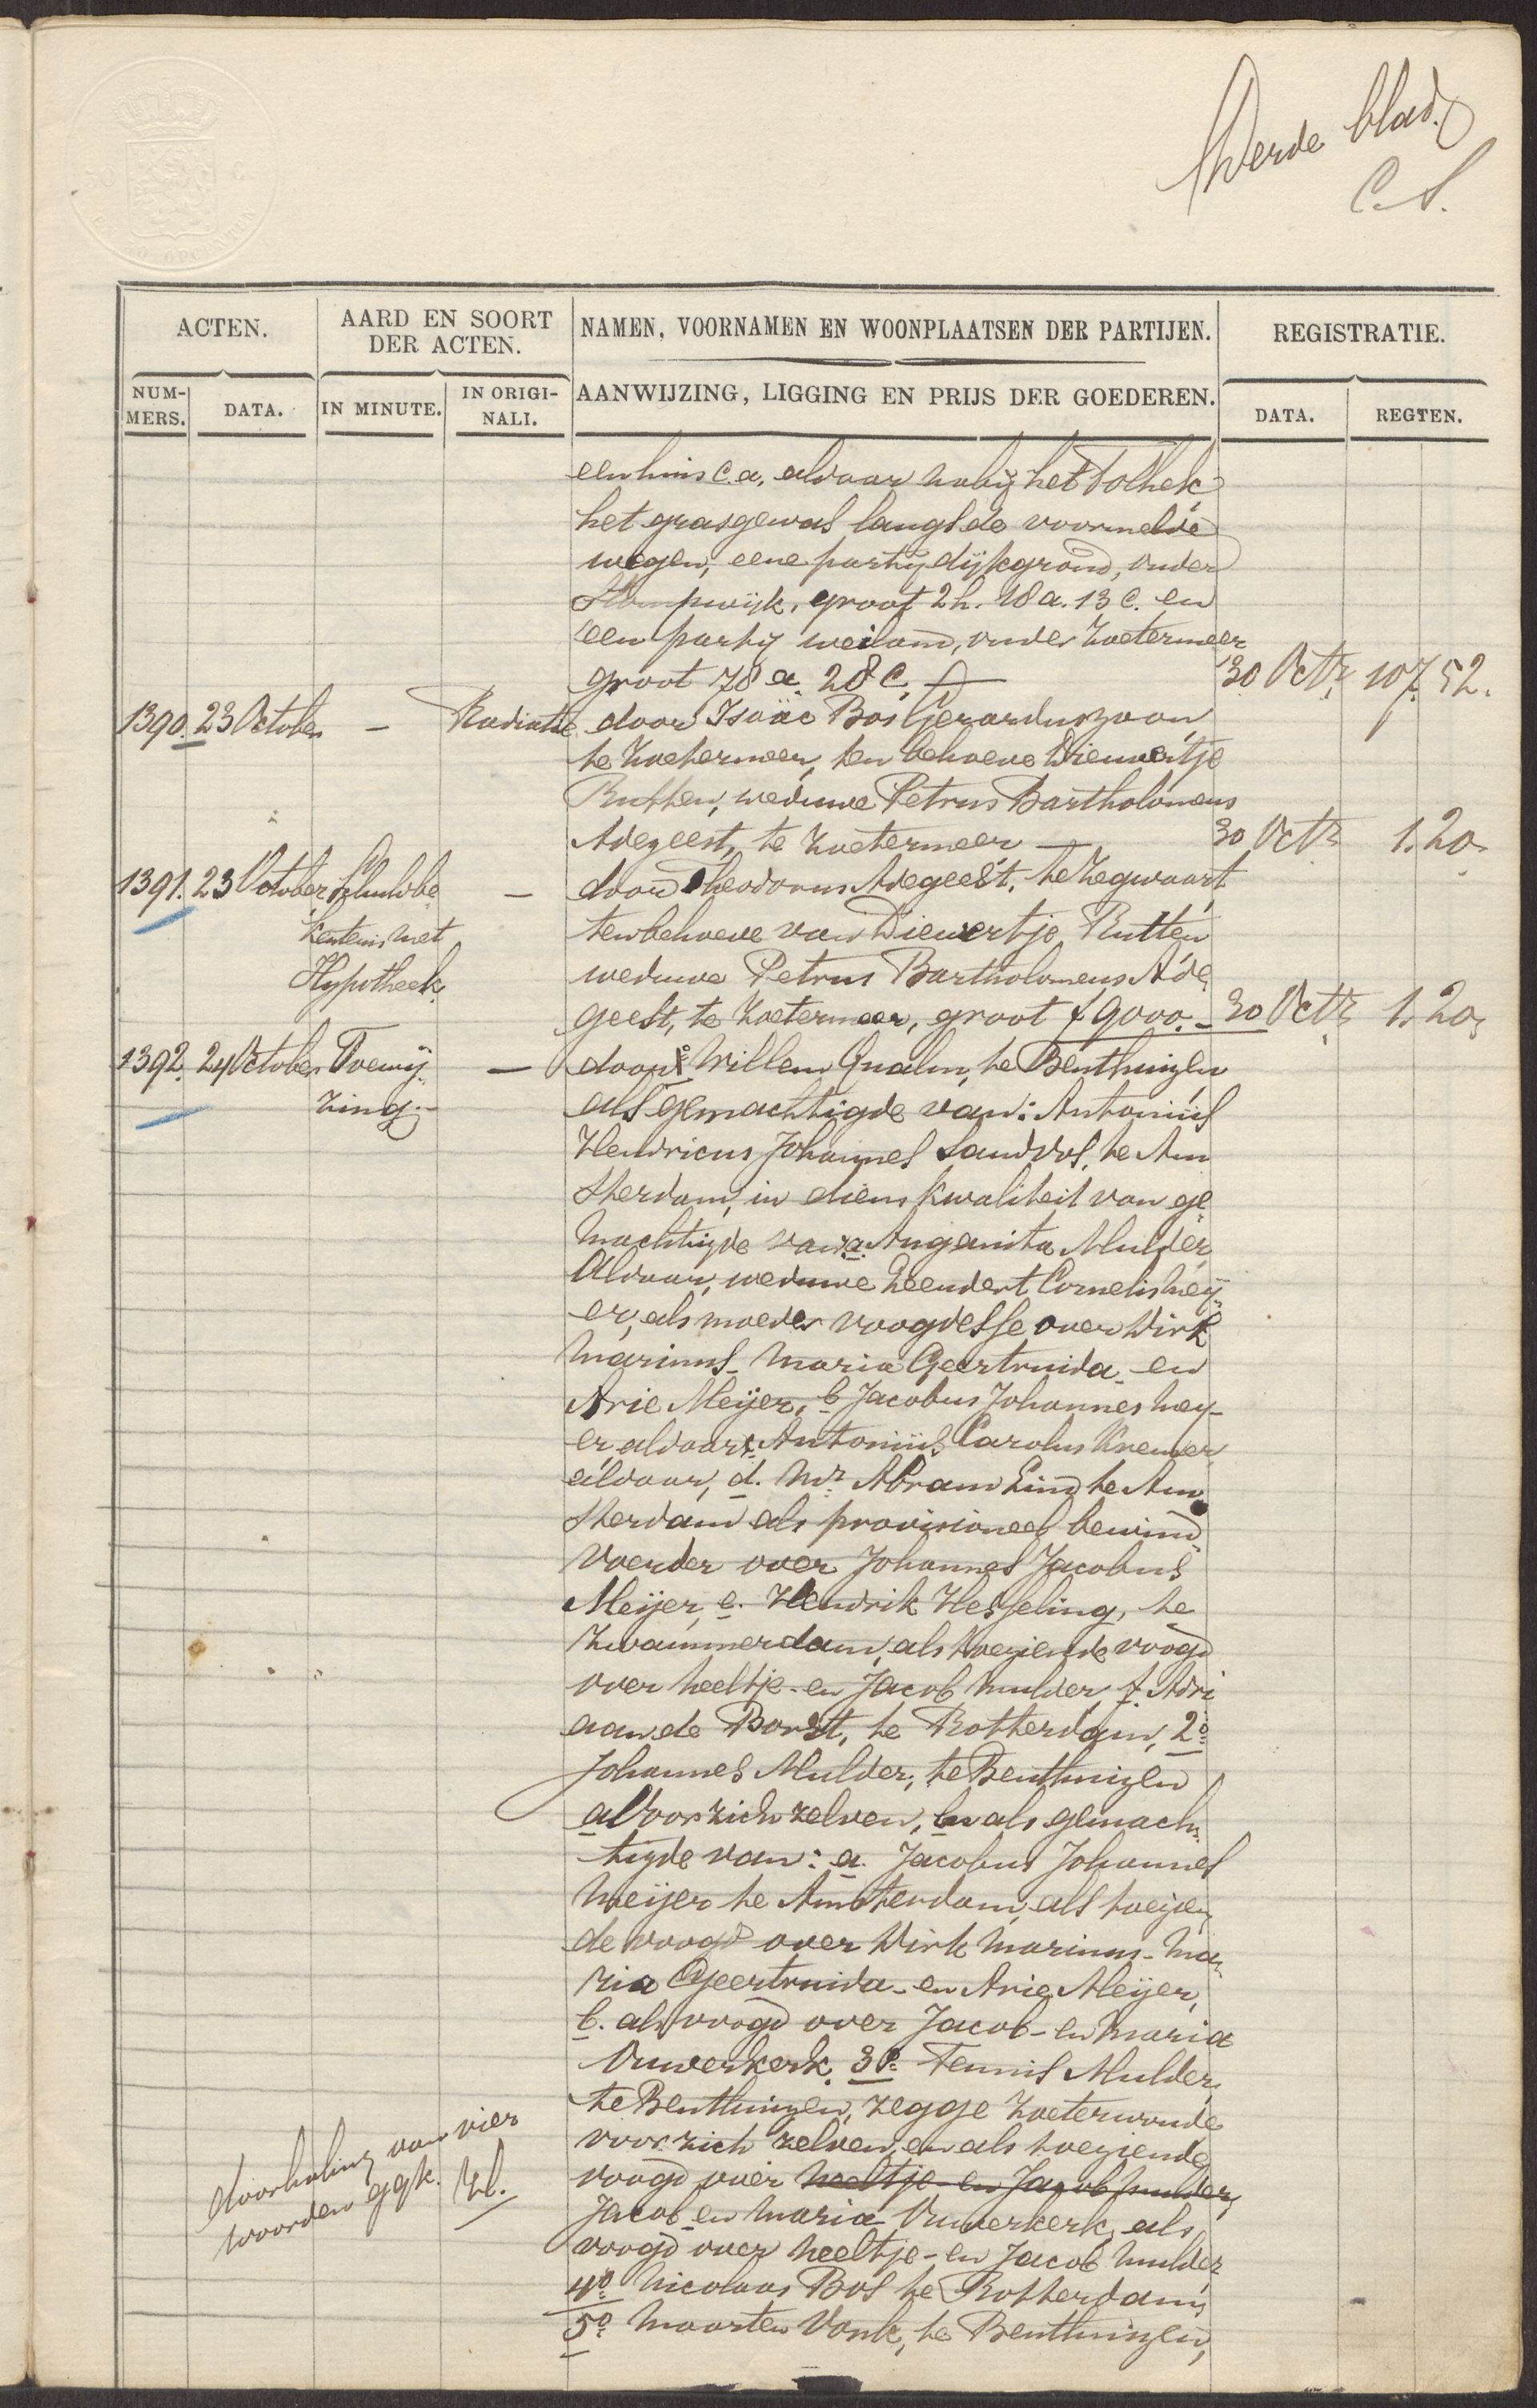 Derde blad.
C. S.
ACTEN.
AARD EN SOORT
DER ACTEN.
NAMEN, VOORNAMEN EN WOONPLAATSEN DER PARTIJEN.
REGISTRATIE.
NUM-
MERS.
DATA.
IN MINUTE.
IN ORIGI-
NALI.
AANWIJZING, LIGGING EN PRIJS DER GOEDEREN.
DATA.
REGTEN.
een huis c.a. aldaar nabij het Tolhek,
het grasgewas langs de voormelde
wegen, eene partij dijkgrond, onder
Stompwijk, groot 2 h. 18 a. 13 c. en
een partij weiland, onder Zoetermeer
groot 78 a. 28 c. 30 Octr. 107.52.
1390. 23 October — Radiatie door Isaäc Bos Gerarduszoon,
te Zoetermeer, ten behoeve Diewertje
Rutten, weduwe Petrus Bartholomeus
Adegeest, te Zoetermeer — 30 Octr 1.20.
1391. 23 October Schuldbe — door Theodorus Adegeest, te Zegwaart
kentenis met ten behoeve van Diewertje Rutten
Hypotheek weduwe Petrus Bartholomeus Ade
geest, te Zoetermeer, groot f 9000. — 30 Octr 1.20.
1392. 24 October Toewij — door 1o Willem Qualm, te Benthuizen
zing. als gemachtigde van: Antoniüs
Hendricus Johannes Landvos, te Am
sterdam, in diens kwaliteit van ge
machtigde van a. Anganita Mulder
Aldaar, weduwe Leendert Cornelis Meij
er, als moeder voogdesse over Dirk
Marinus - Maria Geertruida - en
Arie Meijer, b. Jacobus Johannes Mey-
er, aldaar c. Antoniüs Carolus Kremer
aldaar, d. Mr Abram Lind te Am
sterdam als provisioneel bewind
voerder over Johannes Jacobus
Meijer, e. Hendrik Hesseling, te
Zwammerdam, als toeziende voogd
over Neeltje - en Jacob Mulder f. Adri
aan de Borst, te Rotterdam, 2o
Johannes Mulder, te Benthuizen
a voor zich zelven, en als gemach
tigde van: a. Jacobus Johannes
Meijer te Amsterdam, als toezien
de voogd over Dirk Marinus - Ma
ria Geertruida - en Arie Meijer,
b. als voogd over Jacob - en Maria
Ouwerkerk. 3o Teunis Mulder,
te Benthuizen, zegge Zoeterwoude
voor zich zelven, en als toeziende
voogd over Neeltje en Jacob Mulder,
Jacob en Maria Ouwerkerk, als
voogd over Neeltje - en Jacob Mulder
4o Nicolaas Bos te Rotterdam,
5o Maarten Vonk, te Benthuizen,
doorhaling van vier
woorden ggk. Zl.